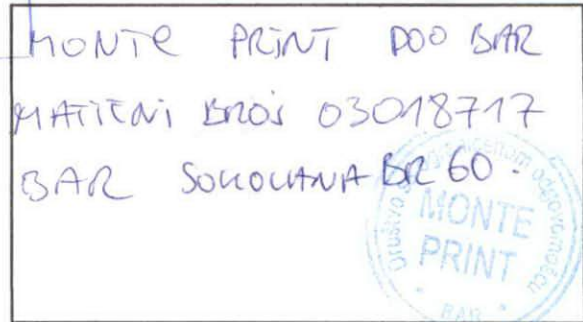 MONTE PRINT DOO BAR
MATIČNI BROJ 03018717
BAR SOKOLANA BR 60.
Društvo s ograničenom odgovornošću
MONTE
PRINT
BAR